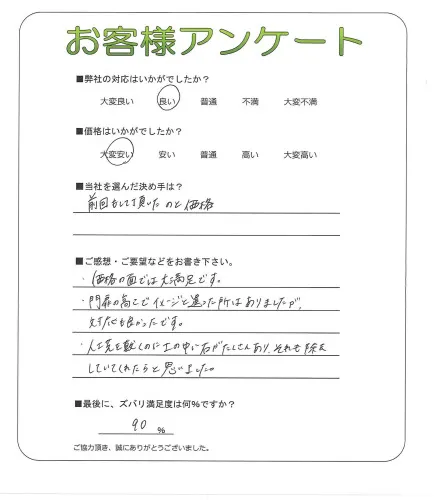 お客様アンケート
■弊社の対応はいかがでしたか？
大変良い 良い 普通 不満 大変不満
■価格はいかがでしたか？
大変安い 安い 普通 高い 大変高い
■当社を選んだ決め手は？
前回もして頂いたのと価格
■ご感想・ご要望などをお書き下さい。
・価格の面では大満足です。
・門扉の高さでイメージと違った所はありましたが、
対応も良かったです。
・人工芝を敷くのに土の中に石がたくさんあり、それも除去
していてくれたらと思いました。
■最後に、ズバリ満足度は何%ですか？
90 %
ご協力頂き、誠にありがとうございました。